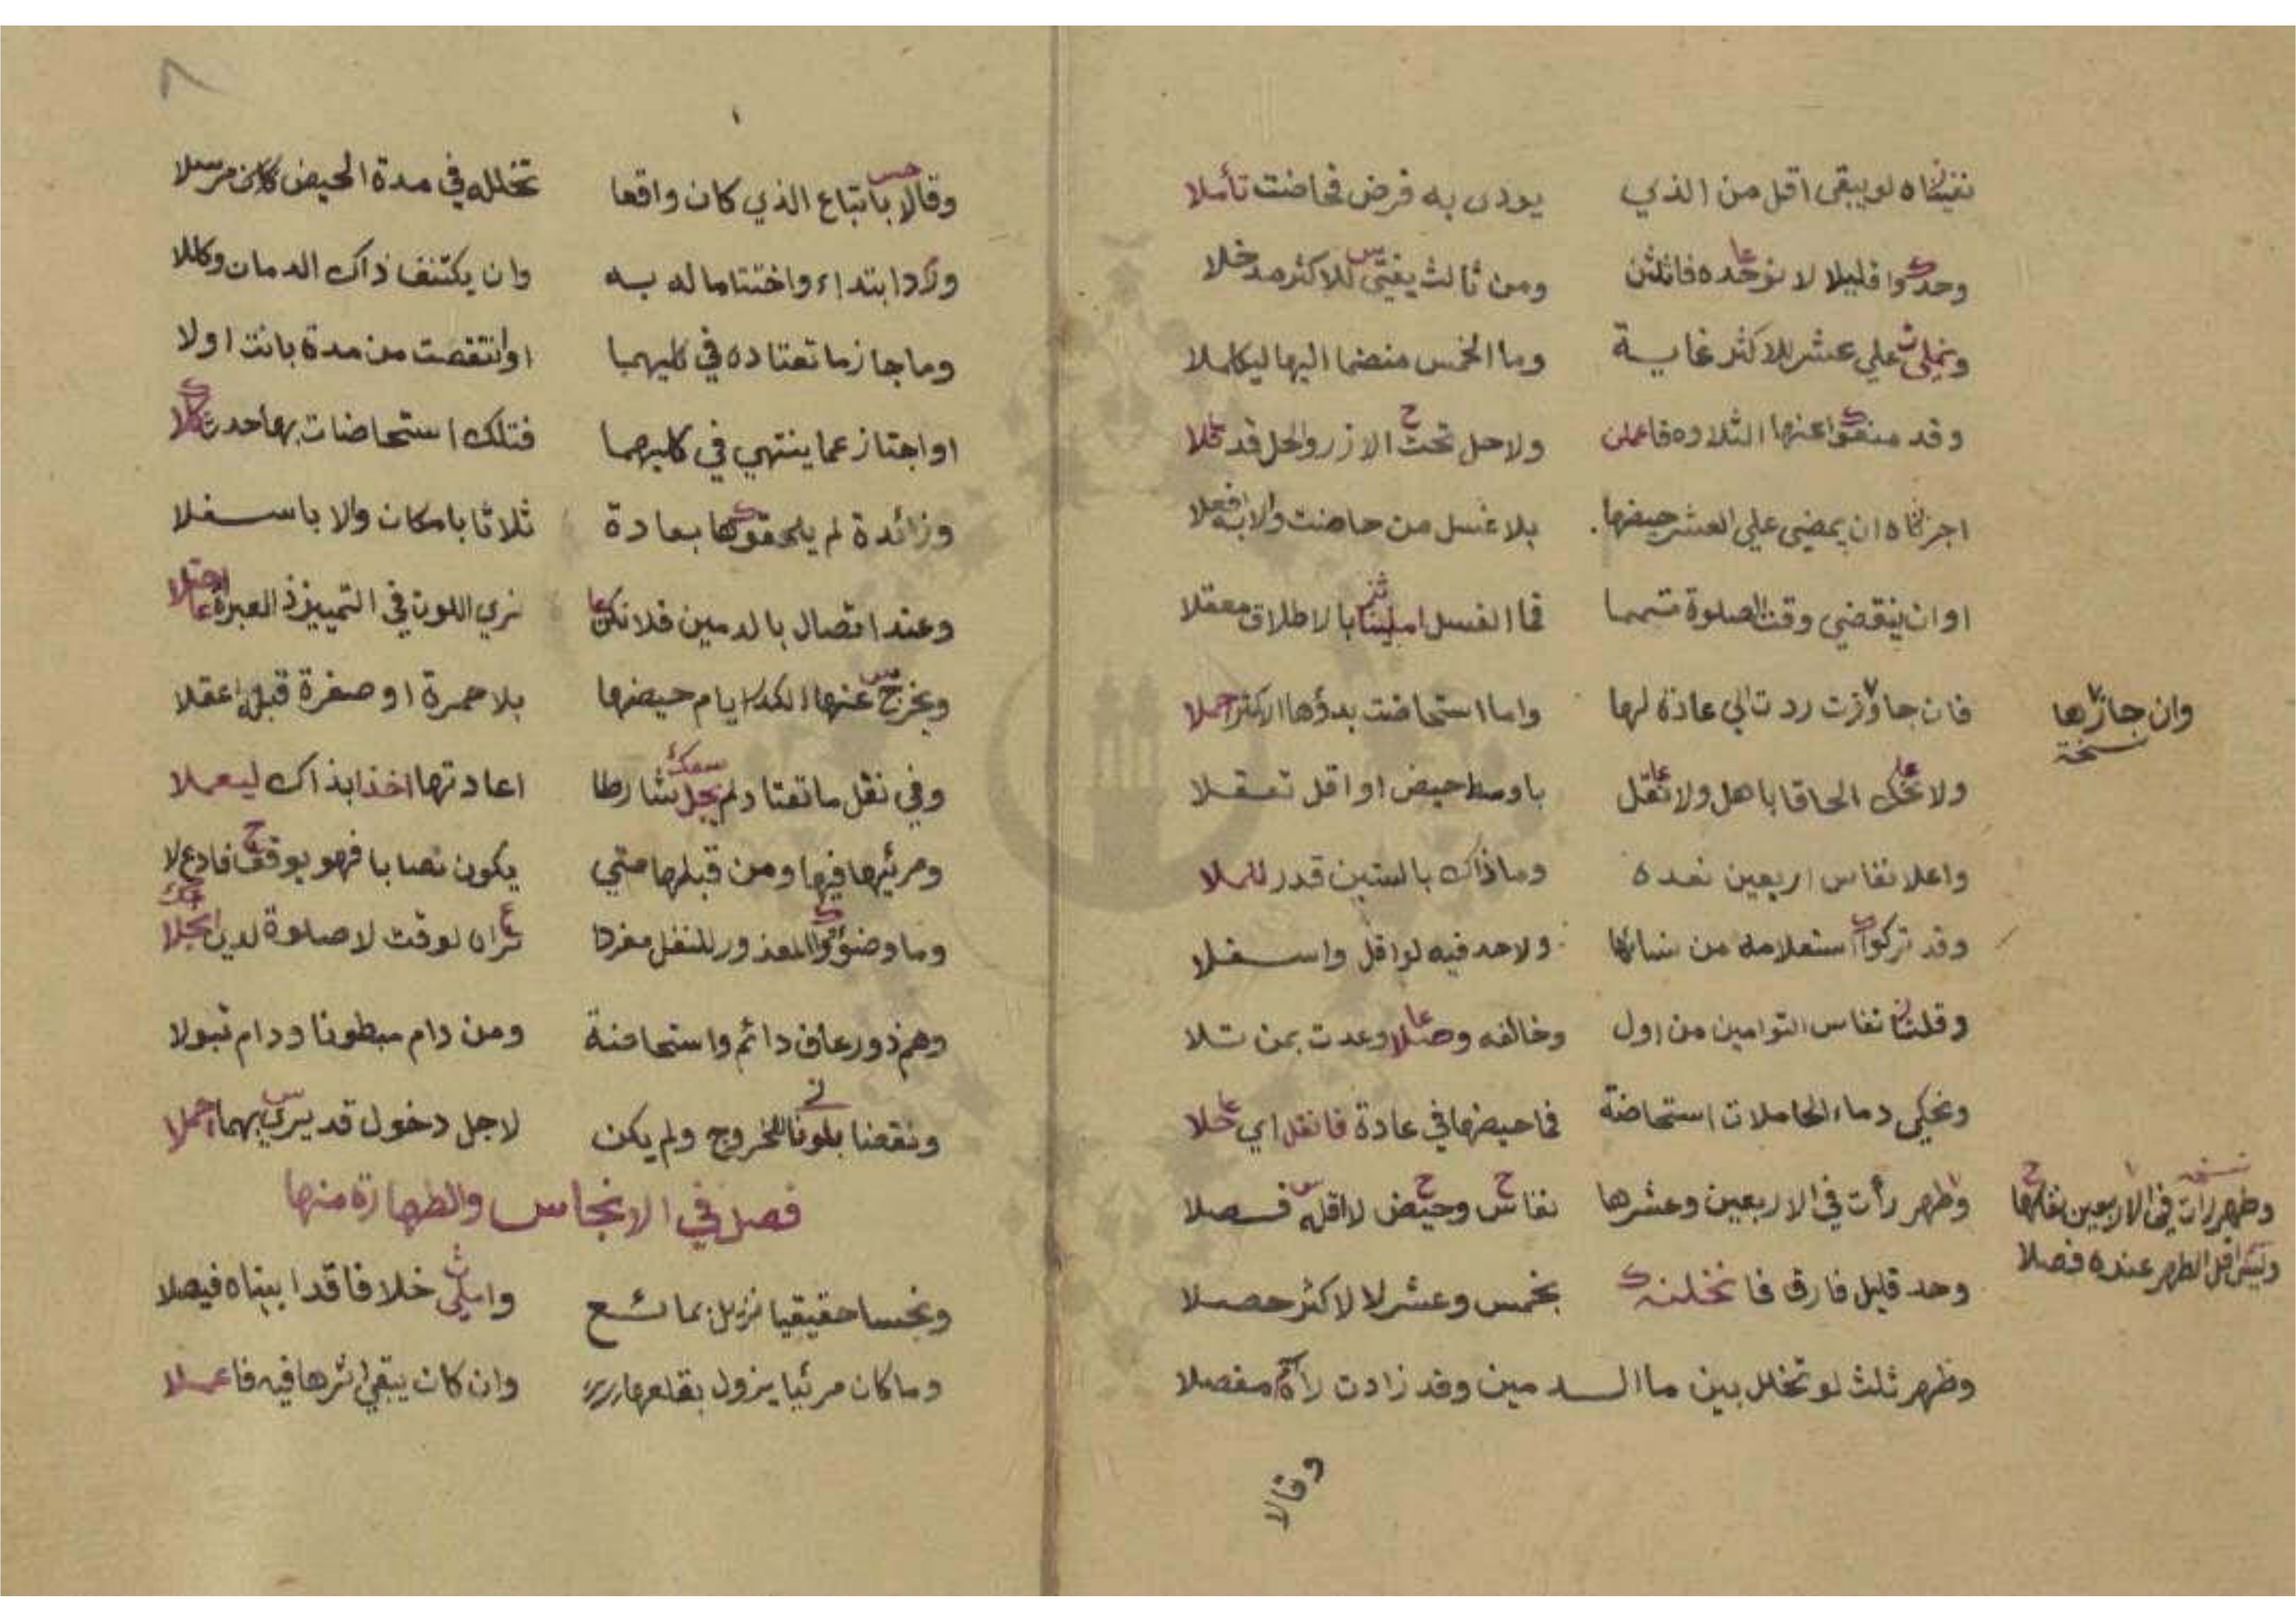 نفيناه لو يبقى اقل من الذي يودى به فرض فحاضت تأملا
وحدوا قليلا لا نوحده فاثلثن ومن ثالث يفتى للاكثر مدخلا
ونملي على عشر للاكثر غاية وما الخمس منضما اليها ليكملا
وقد منعوا عنها التلاوه فاعملن ولا حل تحت الازر والحل قد
اجزناه ان يمضي علي العشر حيضها بلا غسل من حاضت والا به افعلا
او ان ينقضي وقت الصلوة متمما فما الغسل بالاطلاق معقلا
فان جاوزت ردت الي عادة لها واما استحاضت بدؤها الاكثر احملا
وان جازها
نسخة
ولا تحك الحاقا باهل ولا تقل باوسط حيض او اقل تعقلا
واعلا نفاس اربعين نعده وما ذاك بالستين قدر للملا
وقد تركوا استعلامه من نسائها ولا حد فيه لو اقل واسفلا
وقلنا نفاس التوامين من اول وخالفه وعدت بمن تلا
ونحكي دماء الحاملات استحاضة فما حيضها في عادة فانقل اي
وطهر رأت في الاربعين وعشرها نفاس وحيض لا اقله فصلا
نسخه
وطهر رات في الاربعين
وليس اقل الطهر عنده فصلا
وحد قليل فارق بخمس وعشر لا لاكثر حصلا
وطهر ثلث لو تخلل بين ما الدمين وقد زادت رأه مفصلا
وقالا
٨
وقالا باتباع الذي كان واقعا تخلله في مدة الحيض كان مرسلا
ورد ابتداء واختتاما له به وان يكتنف ذاك الدمان وكللا
وما جاز ما تعتاده في كليهما او انتقصت من مدة بانت اولا
او اجتاز عما ينتهي في كليهما فتلك استحاضات بها حدث
وزائدة لم يلحقوها بعادة ثلاثا بامكان والا باسفلا
وعند اتصال بالدمين فلا تكن نري اللون في التمييز ذ العبرة
ونخرج عنها الكدر ايام حيضها بلا حمرة او صفرة قبل اعقلا
وفي نقل ما تعتاد لم يجل شارطا اعادتها اخذا بذاك ليعملا
ومرئيها فيها ومن قبلها متي يكون نصابا فهو يوقف فادع لا
وما وضؤوا المعذور للنفل مفردا تراه لوقت لا صلوة لدي
وهم ذو رعاف دائم واستحاضة ومن دام مبطونا ودام تبولا
ونقضنا بلونا للخروج ولم يكن لاجل دخول قد يرى بهما احملا
فصل في الانجاس والطهارة منها
ونجسا حقيقيا نزيل بمائع واملي خلافا قد ابيناه فيصلا
وما كان مرئيا يزول بقلعها وان كان يبقي اثرها فيه فاعملا